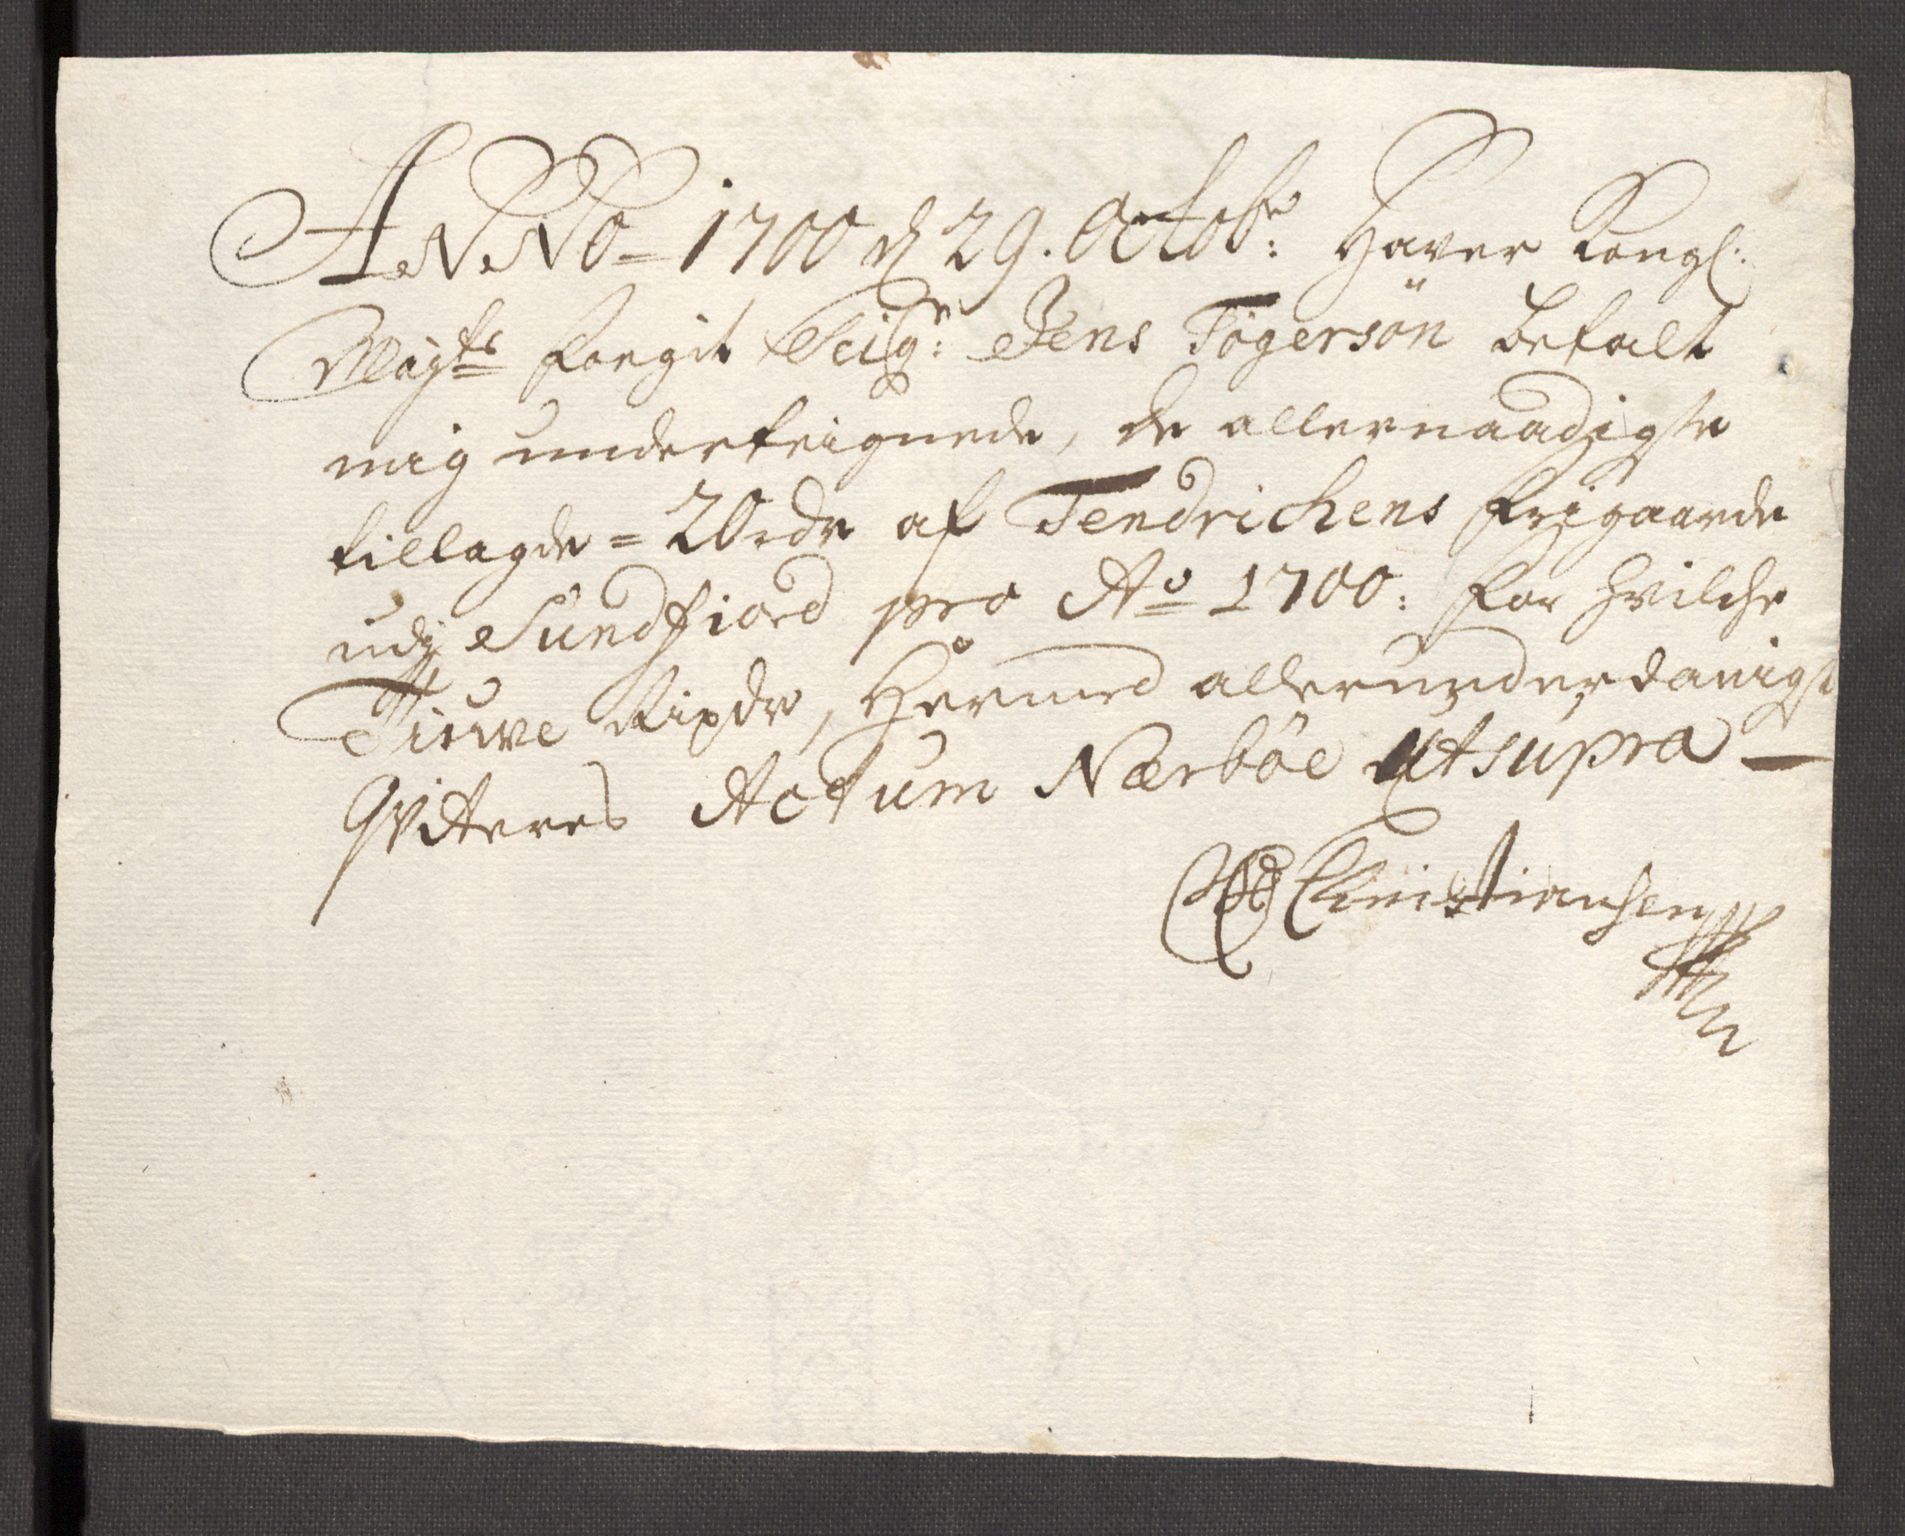 ANNo 1700 d 29. Octobr: Haver Kongl:
Mayts fougit Seigr: Jens Tögersön betalt
mig underteignede, de allernaadigste
tillagde = 20 rdr af Fendrichens frigaarde
udj Sundfiord pro Ao 1700: for hvilche
Tiuwe Rixdr, Hermed allerunderdanigst
Qviteres Actum Nærböe Ut supra
Christiansen